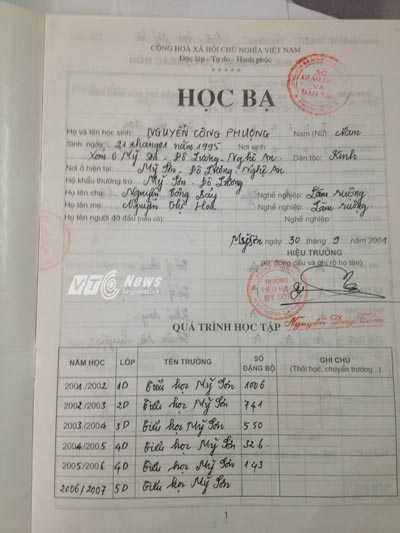 CỘNG HOÀ XÃ HỘI CHỦ NGHĨA VIỆT NAM
Độc lập - Tự do - Hạnh phúc
SỞ GIÁO DỤC VÀ ĐÀO TẠO
HỌC BẠ
Họ và tên học sinh: NGUYỄN CÔNG PHƯỢNG Nam (Nữ): Nam
Sinh ngày: 21 tháng 01 năm 1995 Nơi sinh:
Xóm 6 Mỹ Sơn - Đô Lương, Nghệ An Dân tộc: Kinh
Nơi ở hiện tại: Mỹ Sơn - Đô Lương - Nghệ An
Hộ khẩu thường trú: Mỹ Sơn - Đô Lương
Họ tên cha: Nguyễn Công Bảy Nghề nghiệp: Làm ruộng
Họ tên mẹ: Nguyễn Thị Hoa Nghề nghiệp: Làm ruộng
Họ tên người đỡ đầu (nếu có): Nghề nghiệp:
Mỹ Sơn ngày 30 tháng 9 năm 2001
HIỆU TRƯỞNG
(Ký, đóng dấu và ghi rõ họ tên)
VTC News
QUÁ TRÌNH HỌC TẬP
NĂM HỌC LỚP TÊN TRƯỜNG SỐ ĐĂNG BỘ GHI CHÚ
(Thôi học, chuyển trường...)
2001/2002 1D Tiểu học Mỹ Sơn 1006
2002/2003 2D Tiểu học Mỹ Sơn 741
2003/2004 3D Tiểu học Mỹ Sơn 550
2004/2005 4D Tiểu học Mỹ Sơn 326
2005/2006 4D Tiểu học Mỹ Sơn 143
2006/2007 5D Tiểu học Mỹ Sơn
1